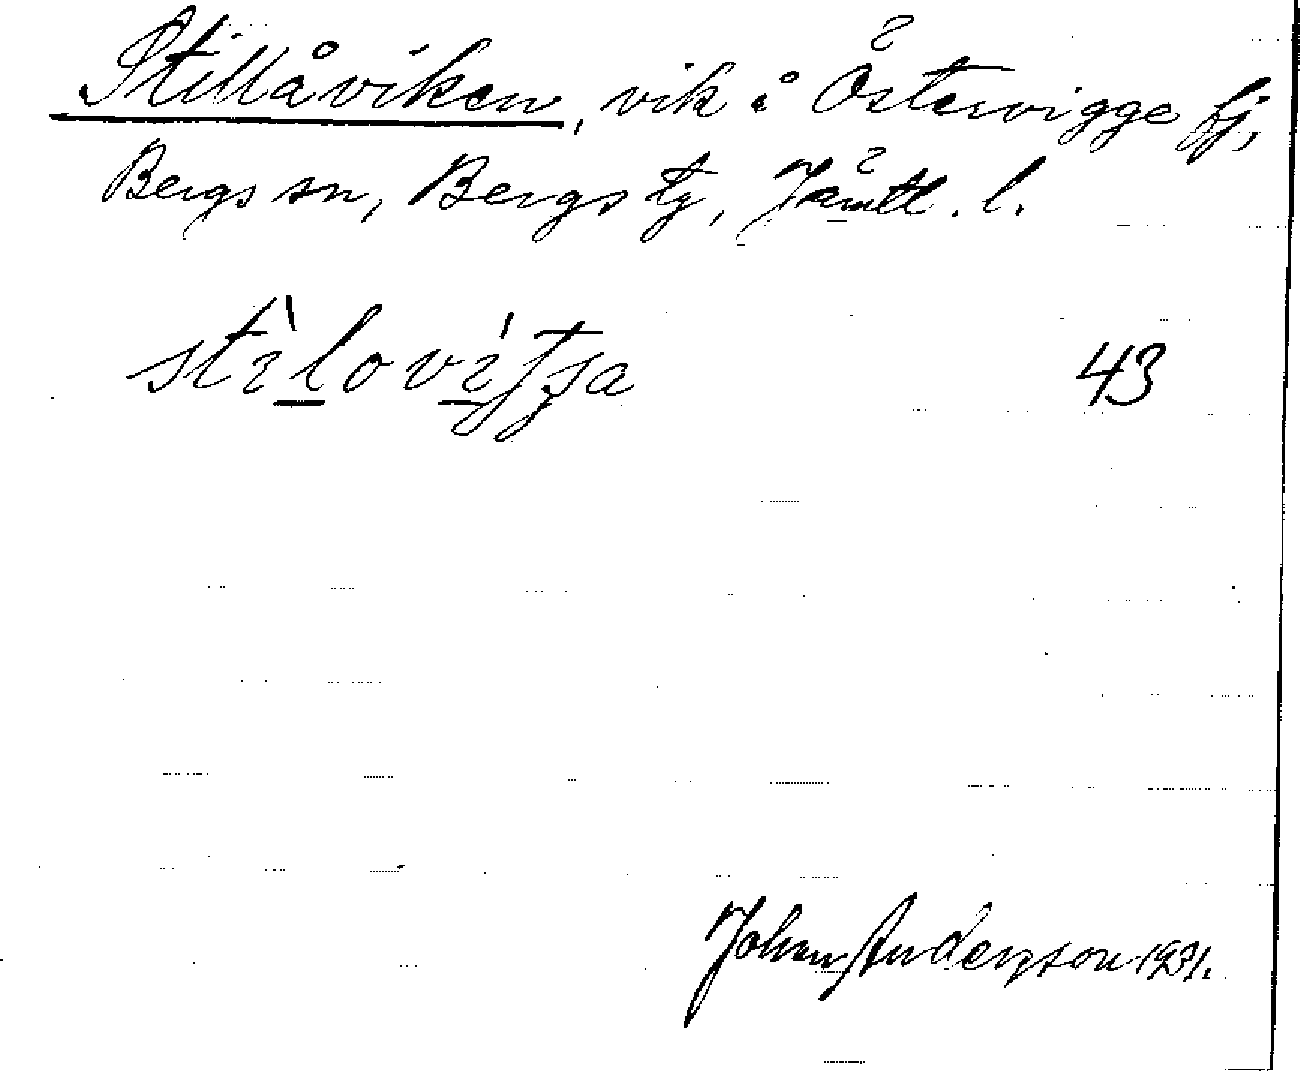 Stillåviken, vik i Östervigge fj,
Bergs sn, Bergs tg, Jämtl. l.
43
Johan Anderson 1931.